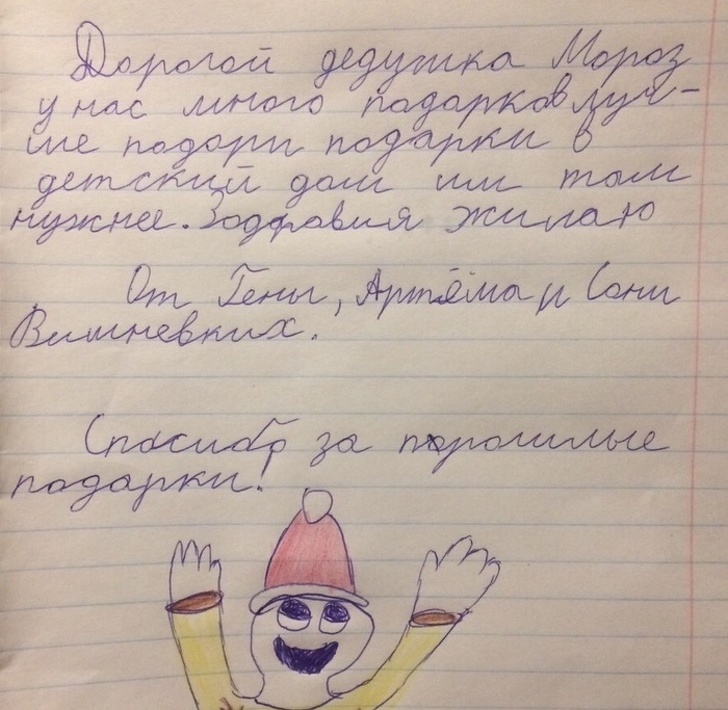 Дорогой дедушка Мороз
у нас много падарков луч-
ше подори подарки в
детский дом им там
нужнее. Здоравия жилаю
От Гены, Артёма и Сони
Вишневких.
Спасибо за порошлые
подарки!